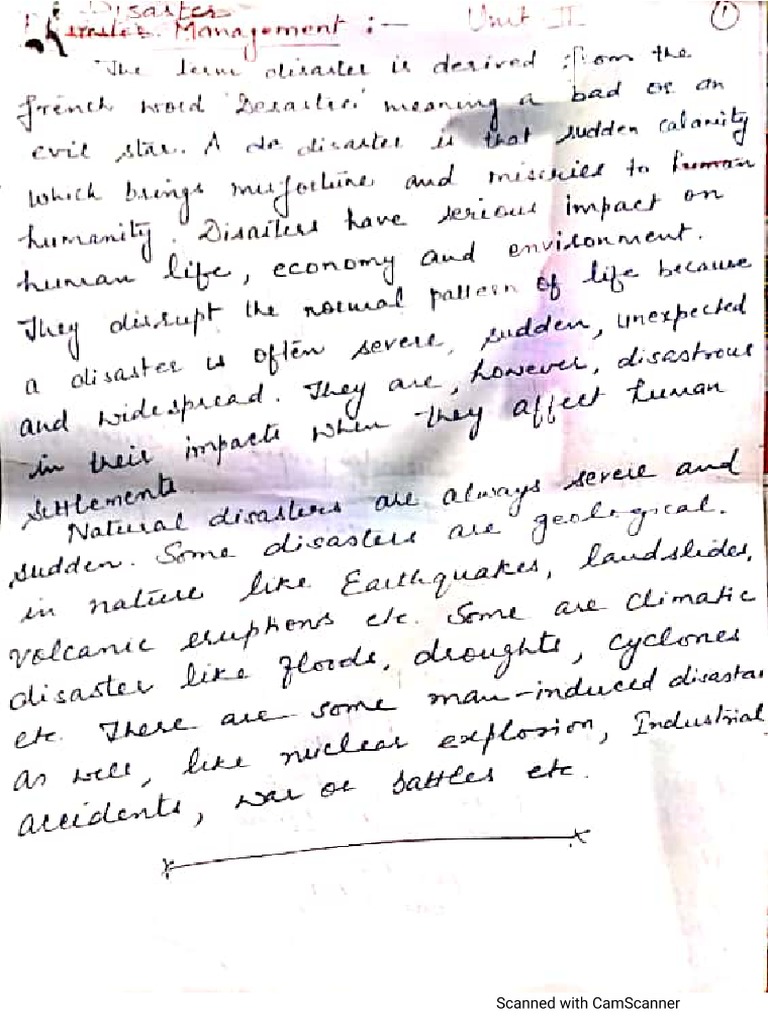 Disaster
Disaster Management :- Unit II 1
The term disaster is derived from the
french word 'Desastre' meaning a bad or an
evil star. A do disaster is that sudden calamity
which brings misfortune and miseries to human
humanity. Disasters have serious impact on
human life, economy and environment.
They disrupt the normal pattern of life because
a disaster is often severe, sudden, unexpected
and widespread. They are, however, disastrous
in their impacts when they affect human
settlements
Natural disasters are always severe and
sudden. Some disasters are geological.
in nature like Earthquakes, landslides,
volcanic eruptions etc. Some are climatic
disaster like floods, droughts, cyclones
etc. There are some man-induced disaster
as well, like nuclear explosion, Industrial
accidents, war or battles etc.
Scanned with CamScanner